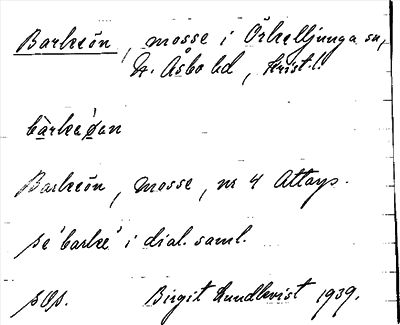 Barkeön, mosse i Örkelljunga sn,
N. Åsbo hd, Krist. l.
bàrke´øen
Barkeön, mosse, nr 4 Attarp.
se 'barke' i dial. saml.
Birgit Lundkvist 1939.